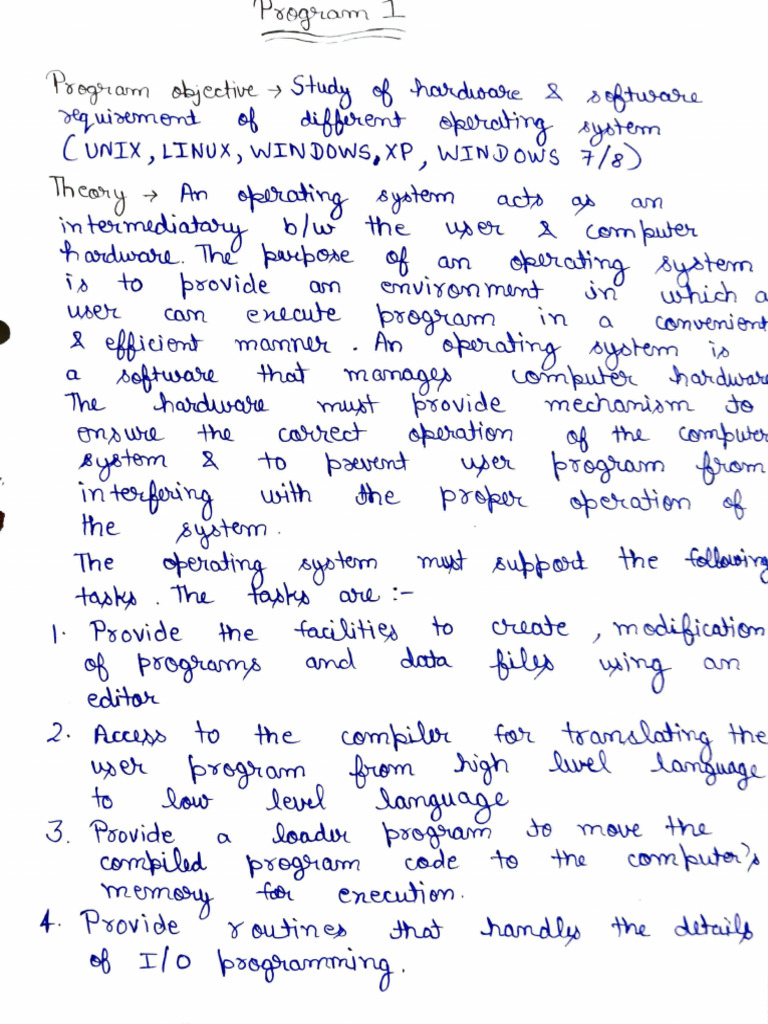 Program 1
Program objective → Study of hardware & software
requirement of different operating system
(UNIX, LINUX, WINDOWS, XP, WINDOWS 7/8)
Theory → An operating system acts as an
intermediatary b/w the user & computer
hardware. The purpose of an operating system
is to provide an environment in which a
user can execute program in a convenient
& efficient manner. An operating system is
a software that manages computer hardware
The hardware must provide mechanism to
ensure the correct operation of the computer
system & to prevent user program from
interfering with the proper operation of
the system.
The operating system must support the following
tasks. The tasks are :-
1. Provide the facilities to create, modification
of programs and data files using an
editor
2. Access to the compiler for translating the
user program from high level language
to low level language
3. Provide a loader program to move the
compiled program code to the computer's
memory for execution.
4. Provide routines that handles the details
of I/O programming.